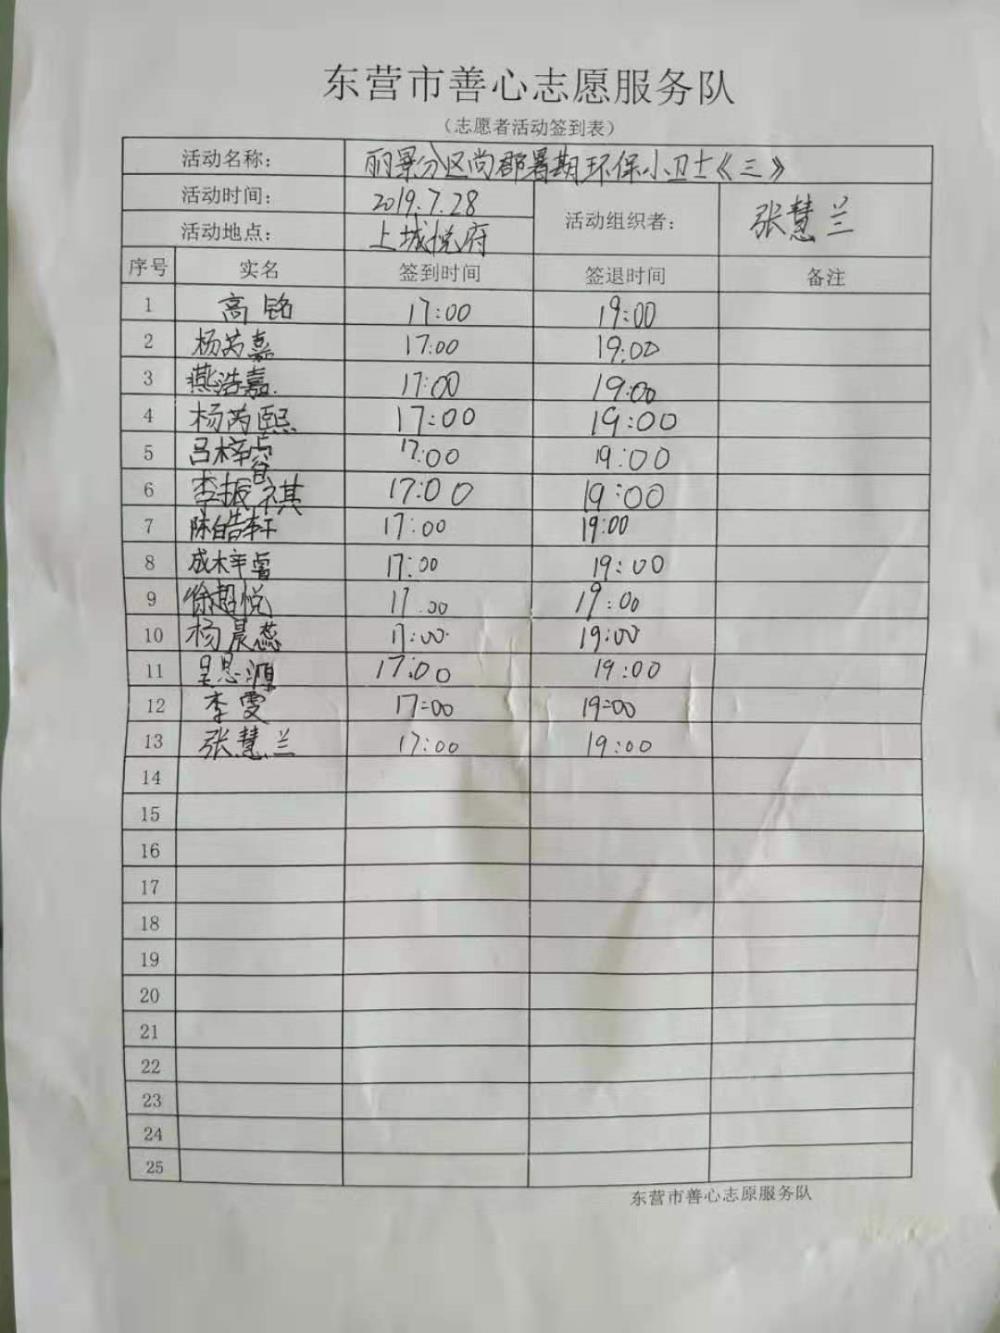 东营市善心志愿服务队
（志愿者活动签到表）
活动名称： 丽景分区尚郡暑期环保小卫士《三》
活动时间： 2019.7.28 活动组织者： 张慧兰
活动地点： 上城悦府
序号 实名 签到时间 签退时间 备注
1 高铭 17:00 19:00
2 杨芮嘉 17:00 19:00
3 燕浩嘉 17:00 19:00
4 杨芮熙 17:00 19:00
5 吕梓睿 17:00 19:00
6 李振祺 17:00 19:00
7 陈皓轩 17:00 19:00
8 成梓 17:00 19:00
9 徐超悦 17:00 19:00
10 杨晨蕊 17:00 19:00
11 吴思源 17:00 19:00
12 李雯 17=00 19=00
13 张慧兰 17:00 19:00
14
15
16
17
18
19
20
21
22
23
24
25
东营市善心志原服务队